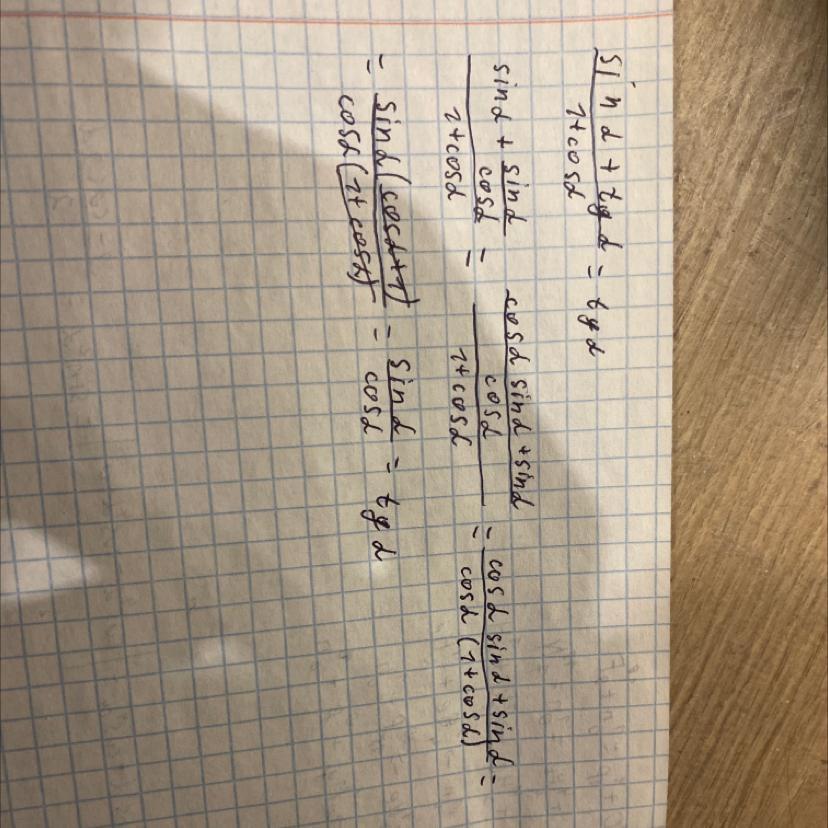 (sin α + tg α)/(1+cos α) = tg α
(sin α + (sin α)/(cos α))/(1+cos α) = ((cos α sin α + sin α)/(cos α))/(1+cos α) = (cos α sin α + sin α)/(cos α (1+cos α)) =
= (sin α (cos α+1))/(cos α (1+cos α)) = (sin α)/(cos α) = tg α